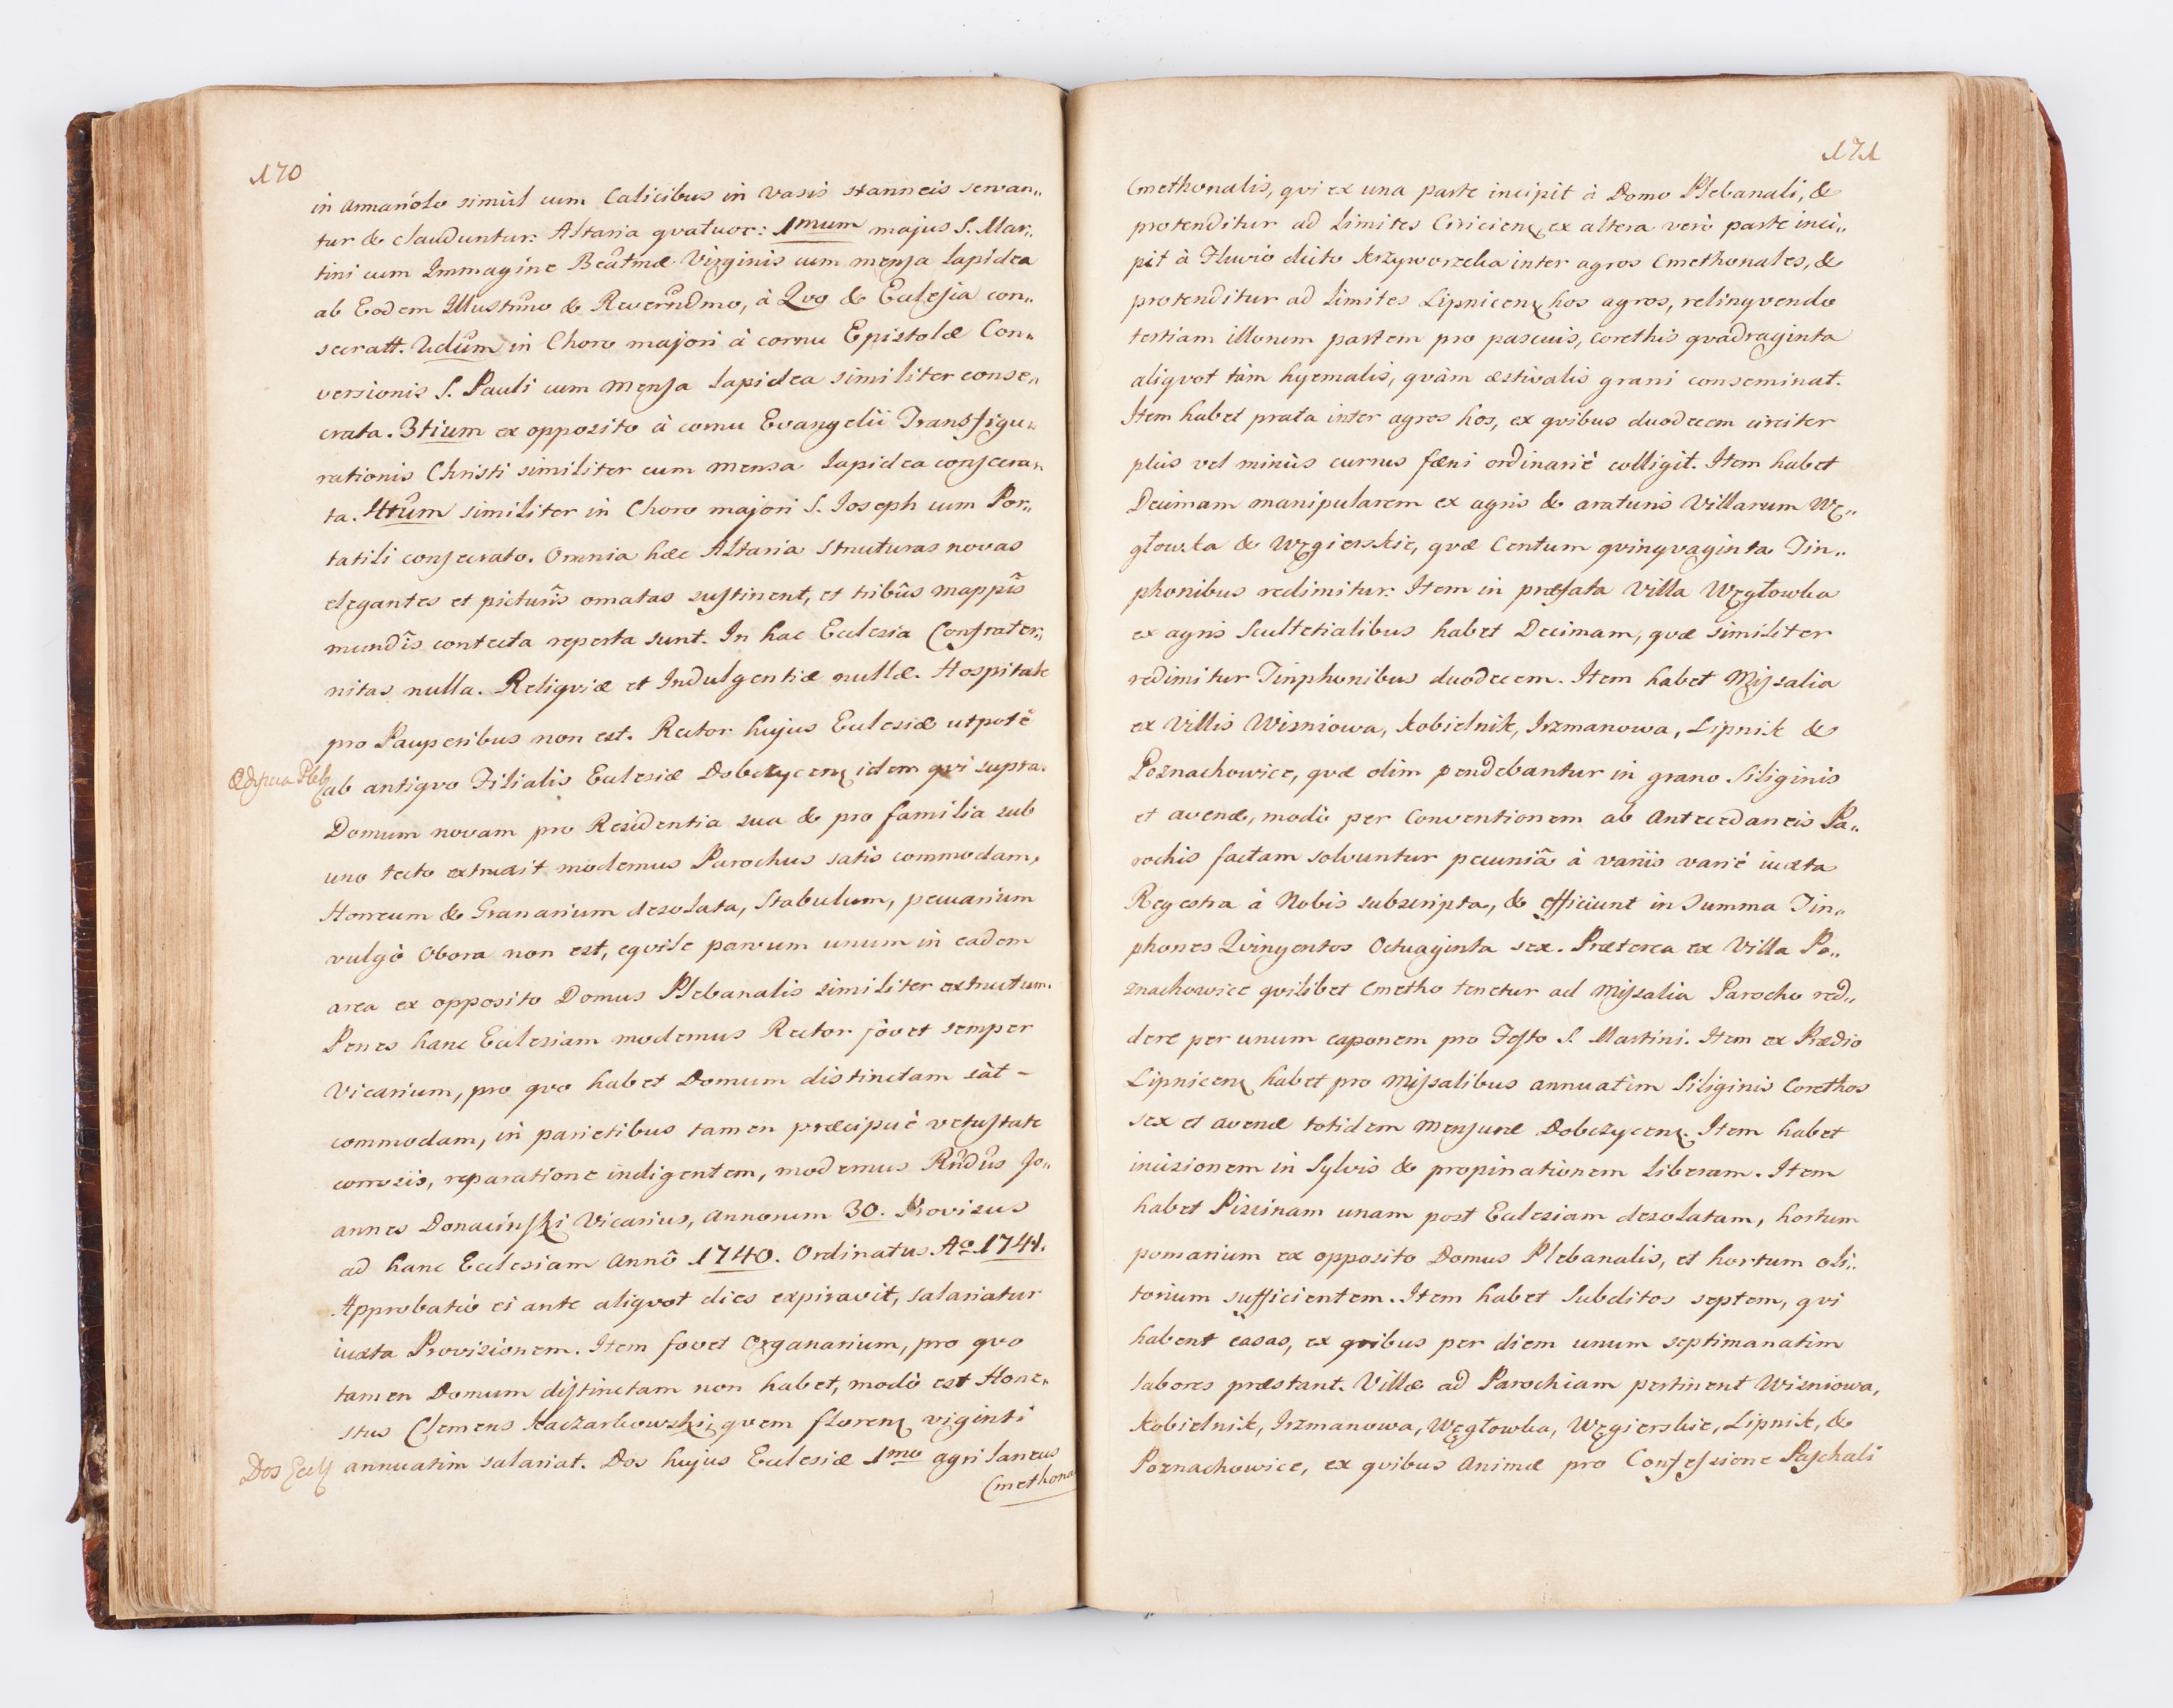 170
in Armariolo simùl cum Calicibus in vasis stanneis servan„
tur & clauduntur: Altaria qvatuor: 1mum majus S. Mar„
tini cum Immagine Beatmæ Virginis cum mensa lapidea
ab Eodem Illustrmo & Reverndmo, à Qvo & Ecclesia con„
secratt. 2dum in Choro majori à cornu Epistolæ Con„
versionis S. Pauli cum Mensa lapidea similiter conse„
crata. 3tium ex opposito à cornu Evangelii Transfigu„
rationis Christi similiter cum mensa lapidea consecra„
ta. 4tum similiter in Choro majori S. Joseph cum Por„
tatili consecrato. Omnia hæc Altaria structuras novas
elegantes et picturis ornatas sustinent, et tribûs mappîs
mundîs contecta reperta sunt. In hac Ecclesia Confrater„
nitas nulla. Reliqviæ et Indulgentiæ nullæ. Hospitale
pro Pauperibus non est. Rector hujus Ecclesiæ utpotè
Ædificia Pleb
ab antiqvo Filialis Ecclesiæ Dobczycenῃ idem qvi supra.
Domum novam pro Residentia sua & pro familia sub
uno tecto extruxit modernus Parochus satis commodam,
Horreum & Granarium desolata, Stabulum, pecuarium
vulgò Obora non est, eqvile parvum unum in eadem
area ex opposito Domus Plebanalis similiter extructum.
Penes hanc Ecclesiam modernus Rector fovet semper
Vicarium, pro qvo habet Domum distinctam sàt-
commodam, in parietibus tamen præcipuè vetustate
corrosis, reparatione indigentem, modernus Rndus Jo„
annes Donaciński Vicarius, Annorum 30. Provisus
ad hanc Ecclesiam Annô 1740. Ordinatus Ao 1741.
Approbatiò ei ante aliqvot dies expiravit, salariatur
iuxta Provisionem. Item fovet Organarium, pro qvo
tamen Domum distinctam non habet, modò est Hone„
stus Clemens Kaczarkowski, qvem florenῃ viginti
Dos Eccl
annuatim salariat. Dos hujus Ecclesiæ 1mo agri laneus
Cmethona
171
Cmethonalis, qvi ex una parte incipit à Domo Plebanali, &
protenditur ad limites Ciricienῃ, ex altera verò parte inci„
pit à Fluvio dicto Krzyworzeka inter agros Cmethonales, &
protenditur ad limites Lipnicenῃ hos agros, relinqvendo
tertiam illorum partem pro pascuis, corethis qvadraginta
aliqvot tàm hyemalis, qvàm æstivalis grani conseminat.
Item habet prata inter agros hos, ex qvibus duodecem circiter
plùs vel minùs currus fæni ordinariè colligit. Item habet
Decimam manipularem ex agris & araturis Villarum Wę„
głowka & Węgierskie, qvæ Centum qvinqvaginta Tin„
phonibus redimitur: Item in præfata Villa Węgłowka
ex agris Scultetialibus habet Decimam, qvæ similiter
redimitur Tinphonibus duodecem. Item habet Missalia
ex Villis Wisniowa, Kobielnik, Irzmanowa, Lipnik &
Poznachowice, qvæ olim pendebantur in grano Siliginis
et avenæ, modò per Conventionem ab Antecedaneis Pa„
rochis factam solvuntur pecuniâ à variis variè iuxta
Regestra à Nobis subscripta, & efficiunt in Summa Tin„
phones Qvingentos Octuaginta sex. Præterea ex Villa Po„
znachowice qvilibet Cmetho tenetur ad Missalia Parocho red„
dere per unum caponem pro Festo S. Martini. Item ex Prædio
Lipnicenῃ habet pro Missalibus annuatim Siliginis Corethos
sex et avenæ totidem Mensuræ Dobczycenῃ. Item habet
incisionem in Sylvis & propinationem liberam. Item
habet Piscinam unam post Ecclesiam desolatam, hortum
pomarium ex opposito Domus Plebanalis, et hortum oli„
torium sufficientem. Item habet Subditos septem, qvi
habent casas, ex qvibus per diem unum septimanatim
labores præstant. Villæ ad Parochiam pertinent Wisniowa,
Kobielnik, Irzmanowa, Węgłowka, Węgierskie, Lipnik, &
Poznachowice, ex qvibus Animæ pro Confessione Paschali